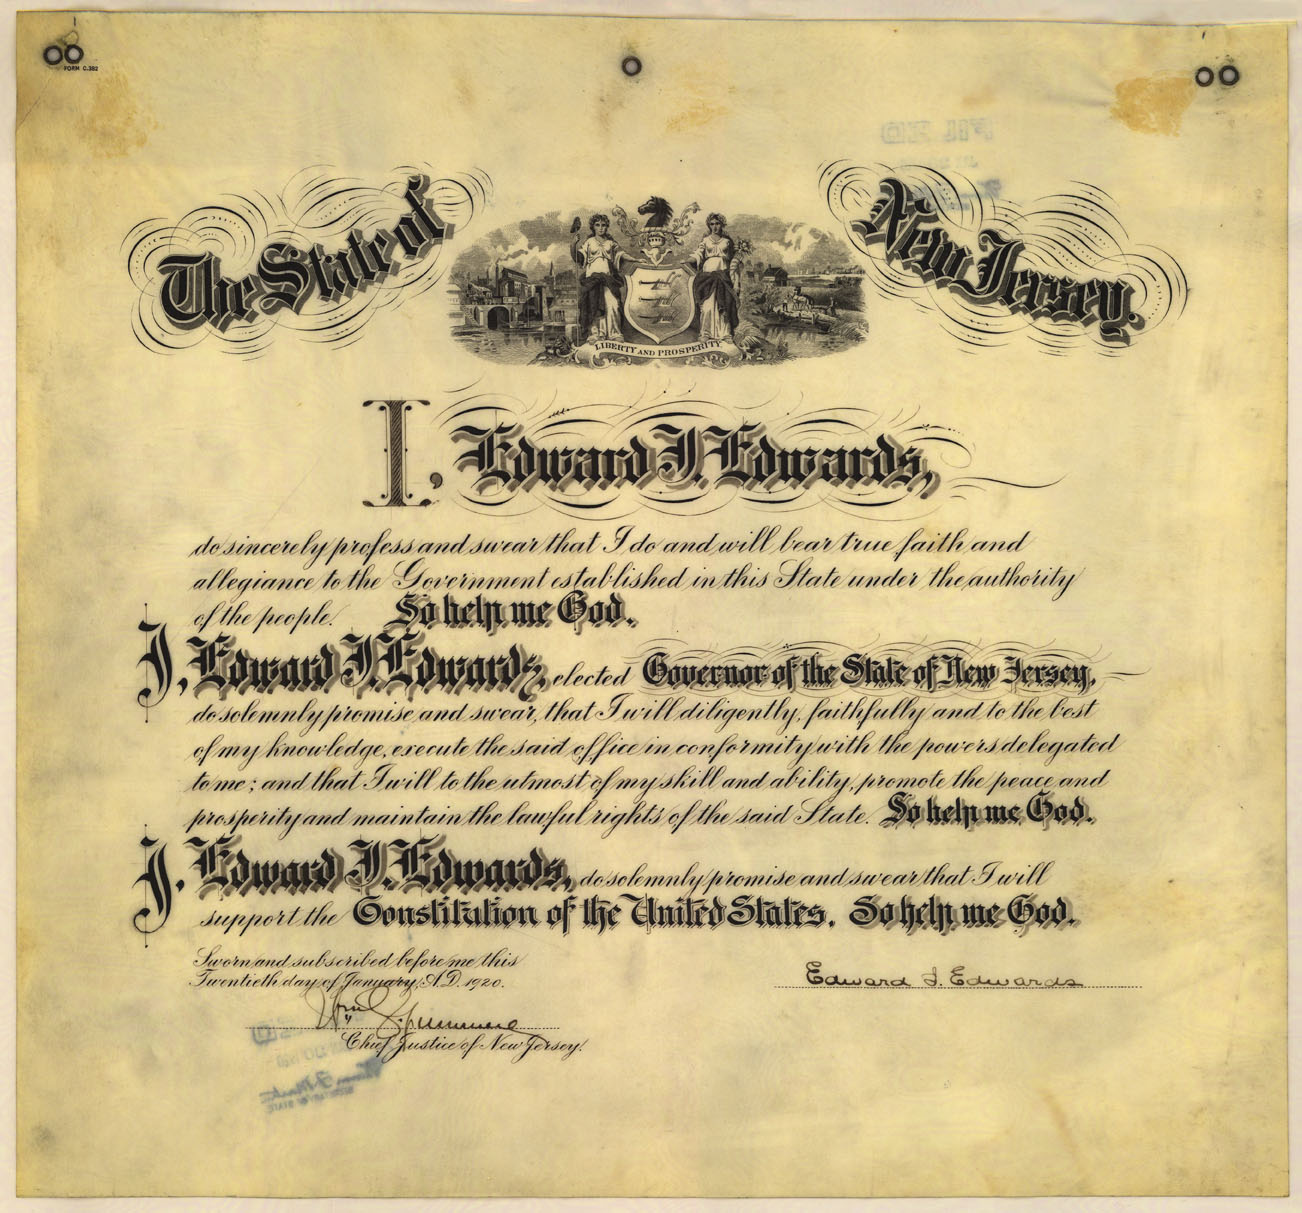 FORM C.382
FILED
The State of New Jersey.
LIBERTY AND PROSPERITY
I, Edward I. Edwards,
do sincerely profess and swear that I do and will bear true faith and
allegiance to the Government established in this State under the authority
of the people. So help me God.
I, Edward I. Edwards, elected Governor of the State of New Jersey,
do solemnly promise and swear, that I will diligently, faithfully and to the best
of my knowledge, execute the said office in conformity with the powers delegated
to me; and that I will to the utmost of my skill and ability, promote the peace and
prosperity and maintain the lawful rights of the said State. So help me God.
I, Edward I. Edwards, do solemnly promise and swear that I will
support the Constitution of the United States. So help me God.
Sworn and subscribed before me this
Twentieth day of January, A.D. 1920.
Edward I. Edwards
Chief Justice of New Jersey.
SECRETARY OF STATE